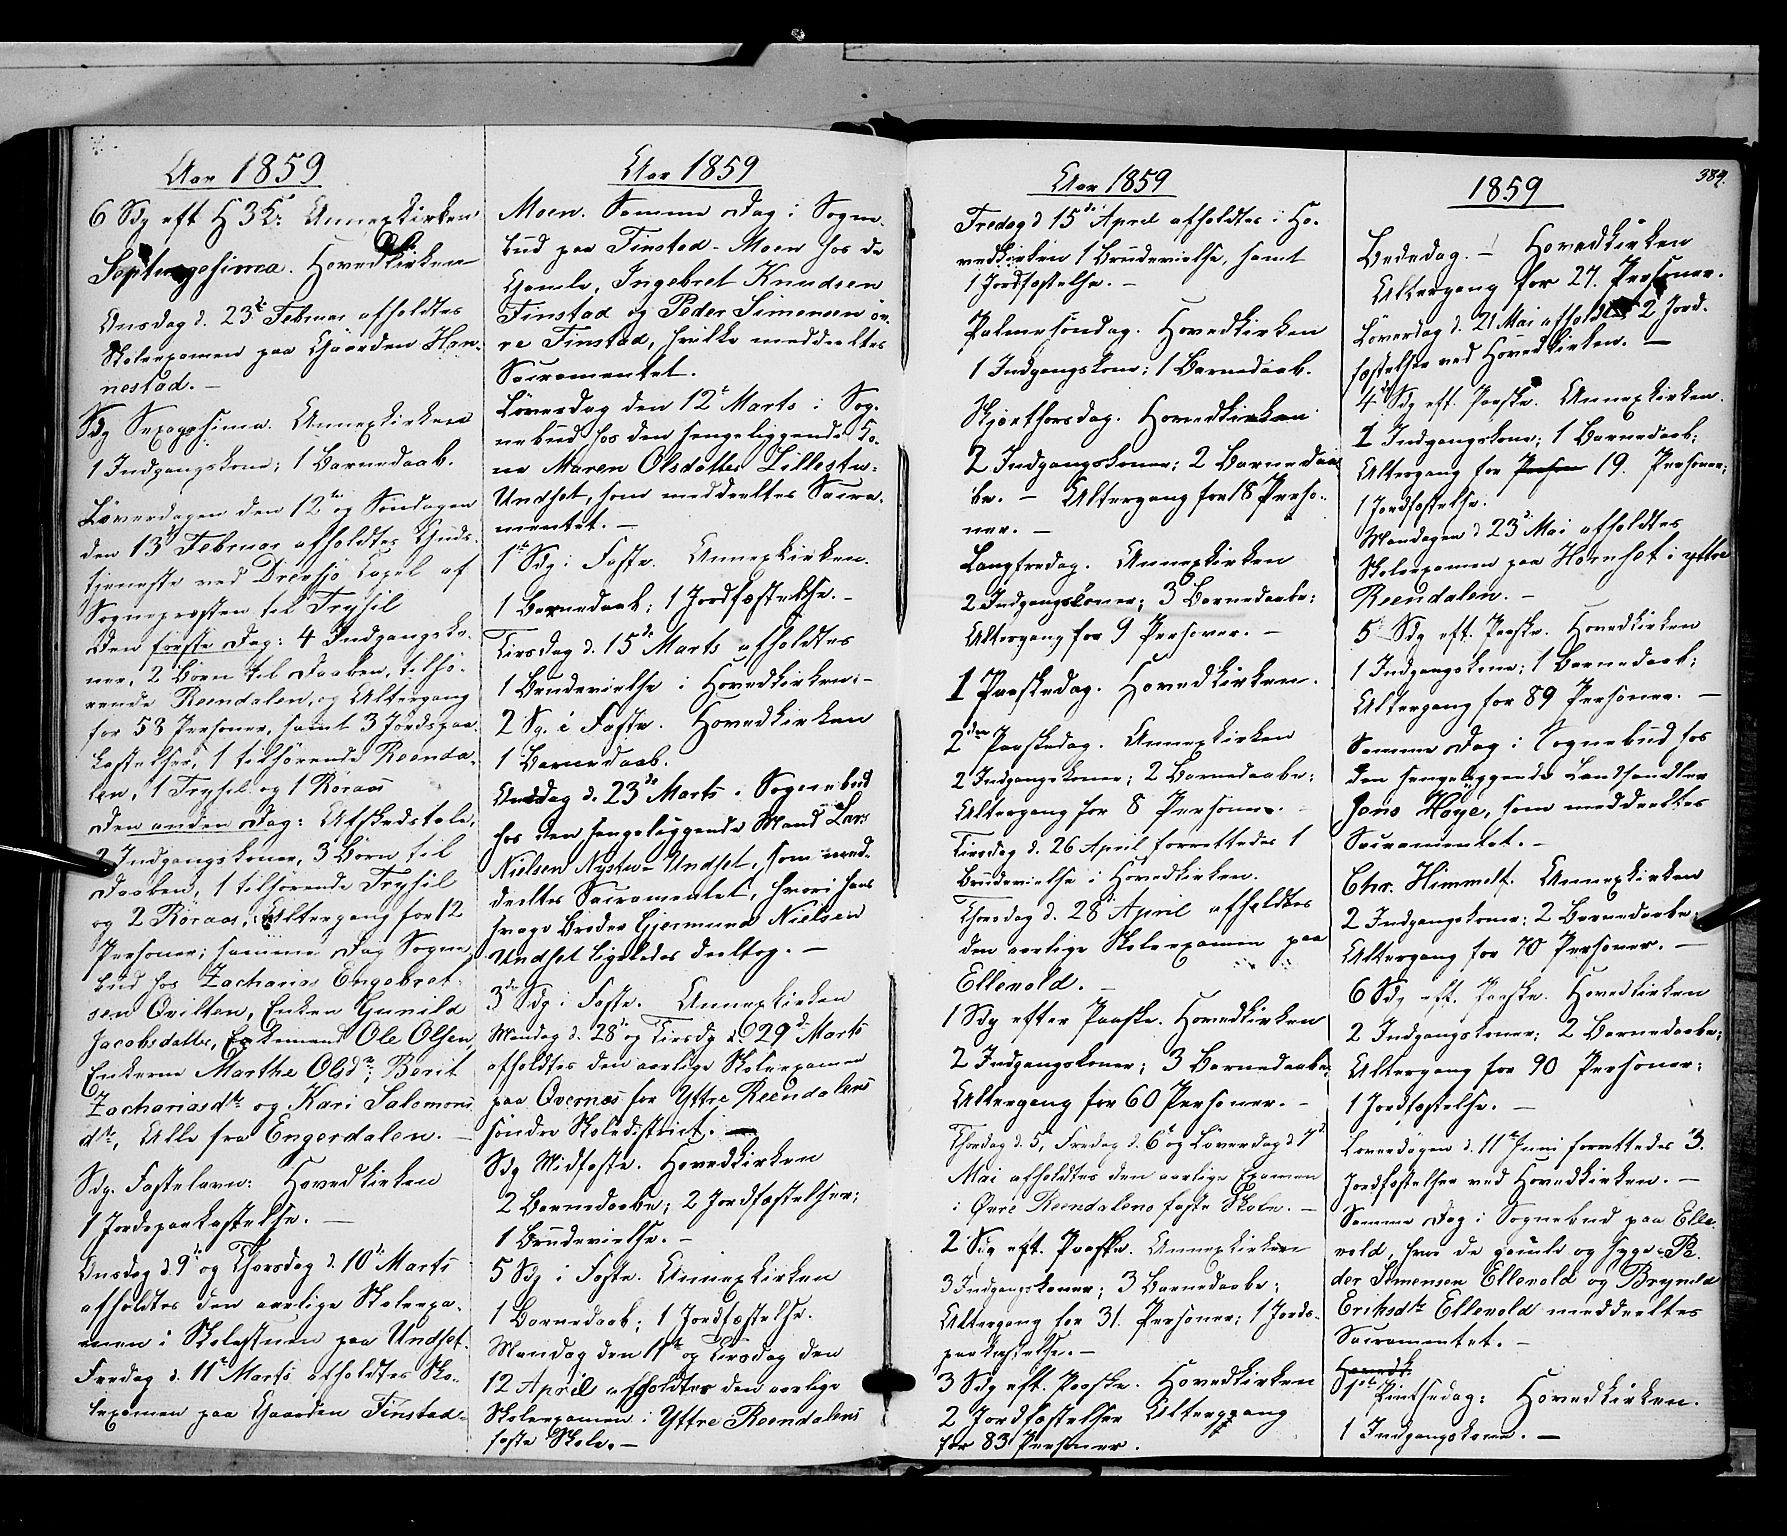 Aar 1859
6 Sdg eft H 3 K. Annexkirken
Septuagesima. Hovedkirken
Onsdag d. 23de Februar afholdtes
Skoleexamen paa Gaarden Han-
nestad. —
Sdg Sexagesima. Annexkirken
1 Indgangskone; 1 Barnedaab.
Löverdagen den 12te og Söndagen
den 13de Februar afholdtes Guds-
tjeneste ved Drevsjö Capel af
Sognepræsten til Trysil
den förste Dag: 4 Indgangsko-
ner, 2 Börn til Daaben, tilhö-
rende Reendalen, og Altergang
for 53 Personer, samt 3 Jordspaa-
kastelser, 1 tilhörende Reenda-
len, 1 Trysil og 1 Röraas
den anden Dag: Afskedstale,
2 Indgangskoner, 3 Börn til
Daaben, 1 tilhörende Trysil
og 2 Röraas; Altergang for 12
Personer; samme Dag Sogne-
bud hos Zacharias Engebret-
sen Qvilten, Enken Gunild
Jacobsdatter, Enkemand Ole Olsen,
Enkerne Marthe Olsdtr, Berit
Zachariasdtr og Kari Salomons-
dtr, Alle fra Engerdalen. —
Sdg. Fastelavn: Hovedkirken
1 Jordspaakastelse. —
Onsdag d. 9de og Thorsdag d. 10de Marts
afholdtes den aarlige Skoleexa-
men i Skolestuen paa Undset.
Fredag d. 11te Marts afholdtes Sko-
leexamen paa Gaarden Finstad-
Aar 1859
Moen. Samme Dag i Sogne-
bud paa Finstad-Moen hos de
Gamle, Ingebret Knudsen
Finstad og Peder Simensen öv-
re Finstad, hvilke meddeeltes
Sacramentet.
Löverdag den 12te Marts i Sog-
nebud hos den sengeliggende Ko-
ne Maren Olsdatter Lillestu-
Undset, som meddeeltes Sacra-
mentet. —
1ste Sdg i Faste. Annexkirken.
1 Barnedaab; 1 Jordfæstelse. —
Tirsdag d. 15de Marts afholdtes
1 Brudevielse i Hovedkirken. —
2 Sg. i Faste. Hovedkirken
1 Barnedaab.
Onsdag d. 23de Marts i Sognebud
hos den sengeliggende Mand Lars
Nielsen Nystu-Undset, som med-
deeltes Sacramentet, hvori hans
svage Broder Gjermund Nielsen
Undset ligeledes deeltog. —
3de Sdg i Faste. Annexkirken
Mandag d. 28de og Tirsdg d. 29de Marts
afholdtes den aarlige Skoleexamen
paa Qvernæs for Yttre Reendalens
söndre Skoledistrict. —
Sdg Midfaste. Hovedkirken
2 Barnedaabe; 2 Jordfæstelser;
1 Brudevielse. —
5 Sdg i Faste. Annexkirken
1 Barnedaab; 1 Jordfæstelse.
Mandag den 11te og Tirsdag den
12 April afholdtes den aarlige
Skoleexamen i Yttre Reendalens
faste Skole. —
Aar 1859
Fredag d 15de April afholdtes i Ho-
vedkirken 1 Brudevielse, samt
1 Jordfæstelse. —
Palmesöndag. Hovedkirken
1 Indgangskone; 1 Barnedaab.
Skjærthorsdag. Hovedkirken
2 Indgangskoner; 2 Barnedaa-
be. — Altergang for 18 Perso-
ner. —
Langfredag. Annexkirken
2 Indgangskoner; 3 Barnedaabe;
Altergang for 9 Personer. —
1 Paaskedag. Hovedkirken.
2den Paaskedag. Annexkirken
2 Indgangskoner; 2 Barnedaabe;
Altergang for 8 Personer.
Tirsdag d. 26 April forrettedes 1
Brudevielse i Hovedkirken.
Thorsdag d. 28de April afholdtes
den aarlige Skoleexamen paa
Ellevold. —
1 Sdg efter Paaske. Hovedkirken
2 Indgangskoner; 3 Barnedaabe;
Altergang for 60 Personer. —
Thorsdag d. 5, Fredag d. 6te og Löverdag d 7de
Mai afholdtes den aarlige Examen
i Övre Reendalens faste Skole. —
2 Sdg eft. Paaske. Annexkirken
3 Indgangskoner; 3 Barnedaabe;
Altergang for 31. Personer; 1 Jords-
paakastelse. —
3 Sdg eft. Paaske. Hovedkirken
2 Jordfæstelser Altergang
for 83 Personer.
384.
1859
Bededag. — Hovedkirken
Altergang for 27. Personer.
Löverdag d. 21 Mai afholdtes 2 Jord-
fæstelser ved Hovedkirken. —
4de Sdg eft. Paaske. Annexkirken.
1 Indgangskone; 1 Barnedaab;
Altergang for Person 19. Personer;
1 Jordfæstelse.
Mandagen d 23de Mai afholdtes
Skoleexamen paa Hornset i yttre
Reendalen. —
5. Sdg eft. Paaske. Hovedkirken
1 Indgangskone; 1 Barnedaab;
Altergang for 89 Personer. —
Samme Dag i Sognebud hos
den sengeliggende Landhandler
Jens Höye, som meddeeltes
Sacramentet. —
Chr. Himmelf. Annexkirken
2 Indgangskoner; 2 Barnedaabe;
Altergang for 70 Personer. —
6 Sdg eft. Paaske. Hovedkirken
2 Indgangskoner; 2 Barnedaabe;
Altergang for 90 Personer;
1 Jordfæstelse. —
Löverdagen d. 11te Juni forrettedes 3.
Jordfæstelser ved Hovedkirken. —
Samme Dag i Sognebud paa Elle-
vold, hvor de gamle og syge Pe-
der Simensen Ellevold og Brynild
Eriksdtr Ellevold meddeeltes
Sacramentet. —
Hovedk.
1ste Pintsedag: Hovedkirken.
1 Indgangskone. —